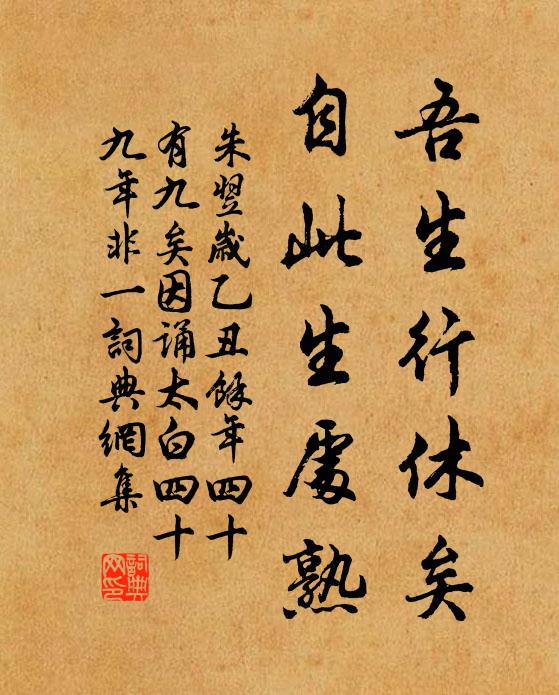 吾生行休矣
自此生處熟
朱翌歲乙丑餘年四十
有九矣因誦太白四十
九年非一詞典網集
詞典
网印